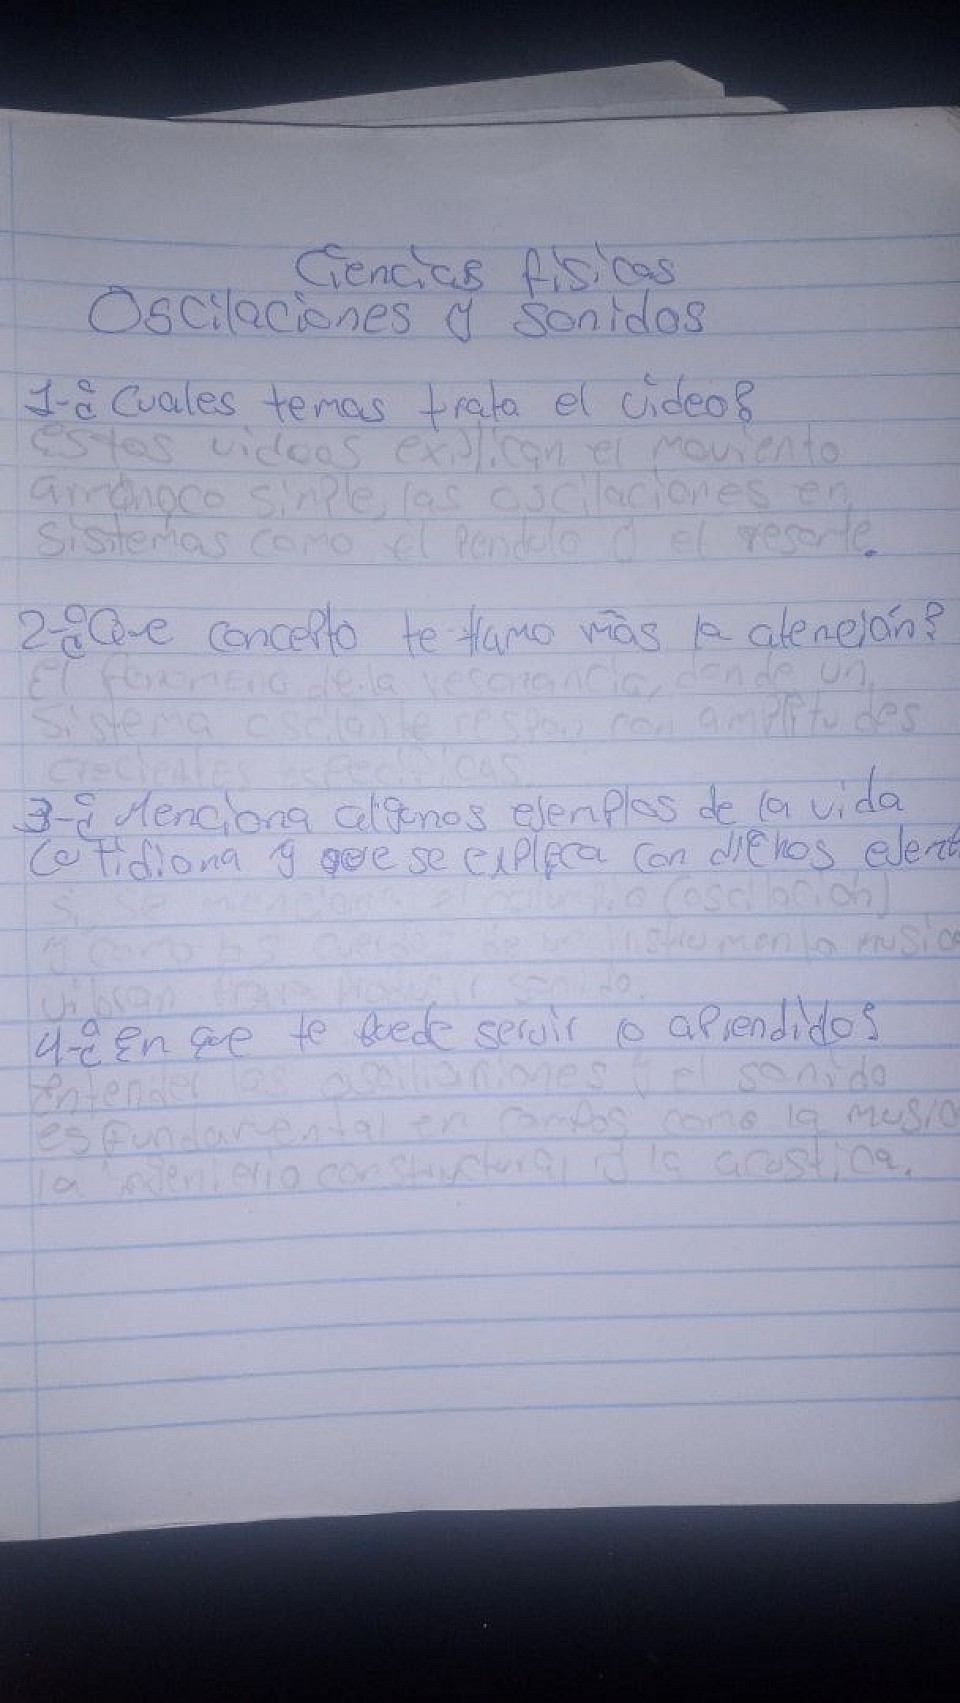 Ciencias físicas
Oscilaciones y sonidos
1-¿Cuales temas trata el video?
estos videos explican el moviento
armonoco simple, las oscilaciones en
sistemas como el pendulo y el resorte.
2-¿Que concepto te llamo más la atención?
El fenomeno de la resonancia, donde un
sistema oscilante con amplitudes
crecientes especificas.
3-¿Menciona algunos ejemplos de la vida
Cotidiana y que se explica con dichos
si se (oscilación)
y como instrumento
vibran para sonido.
4-¿En que te puede servir lo aprendido?
entender las y el sonido
es fundamental en campos como la
la constructural y la acustica.